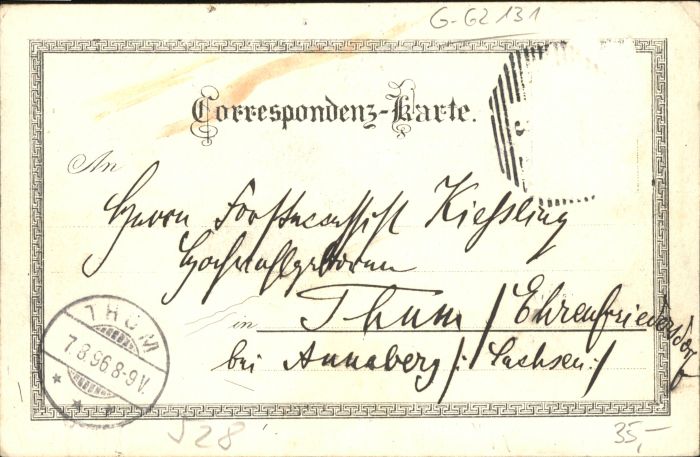 G-G2 131
Correspondenz-Karte.
An
Herrn Kießling
Hochwohlgeboren
in Thum / Ehrenfriedersdorf
bei Annaberg /: Sachsen :/
THUM
7.8.96 8-9V.
J28
35,-